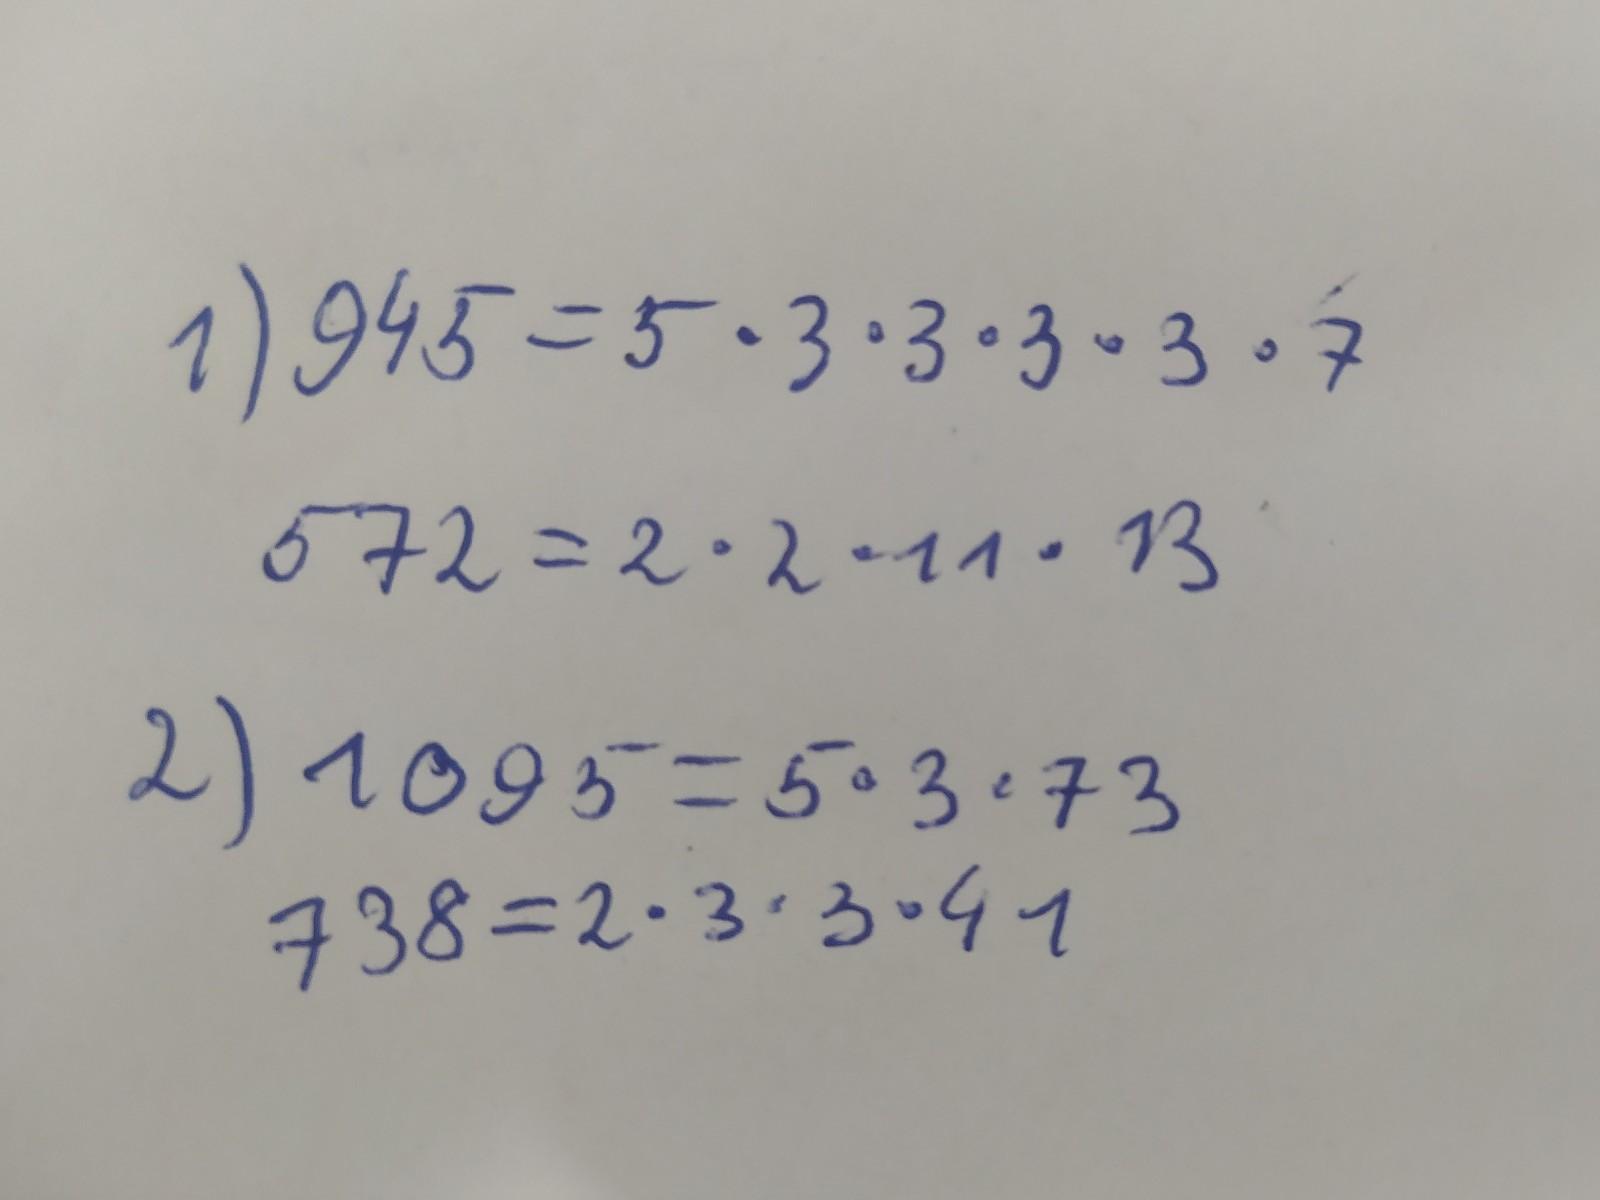 1) 945 = 5 · 3 · 3 · 3 · 3 · 7
572 = 2 · 2 · 11 · 13
2) 1095 = 5 · 3 · 73
738 = 2 · 3 · 3 · 41